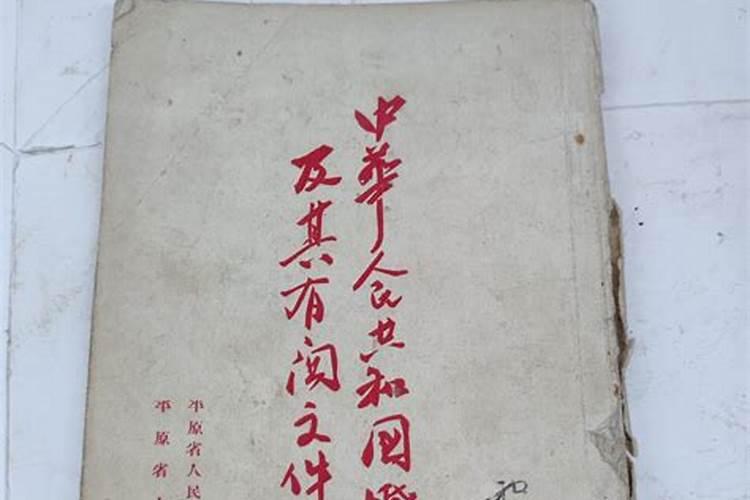 中華人民共和國
及其有関文件
平原省人民
平原省人
和